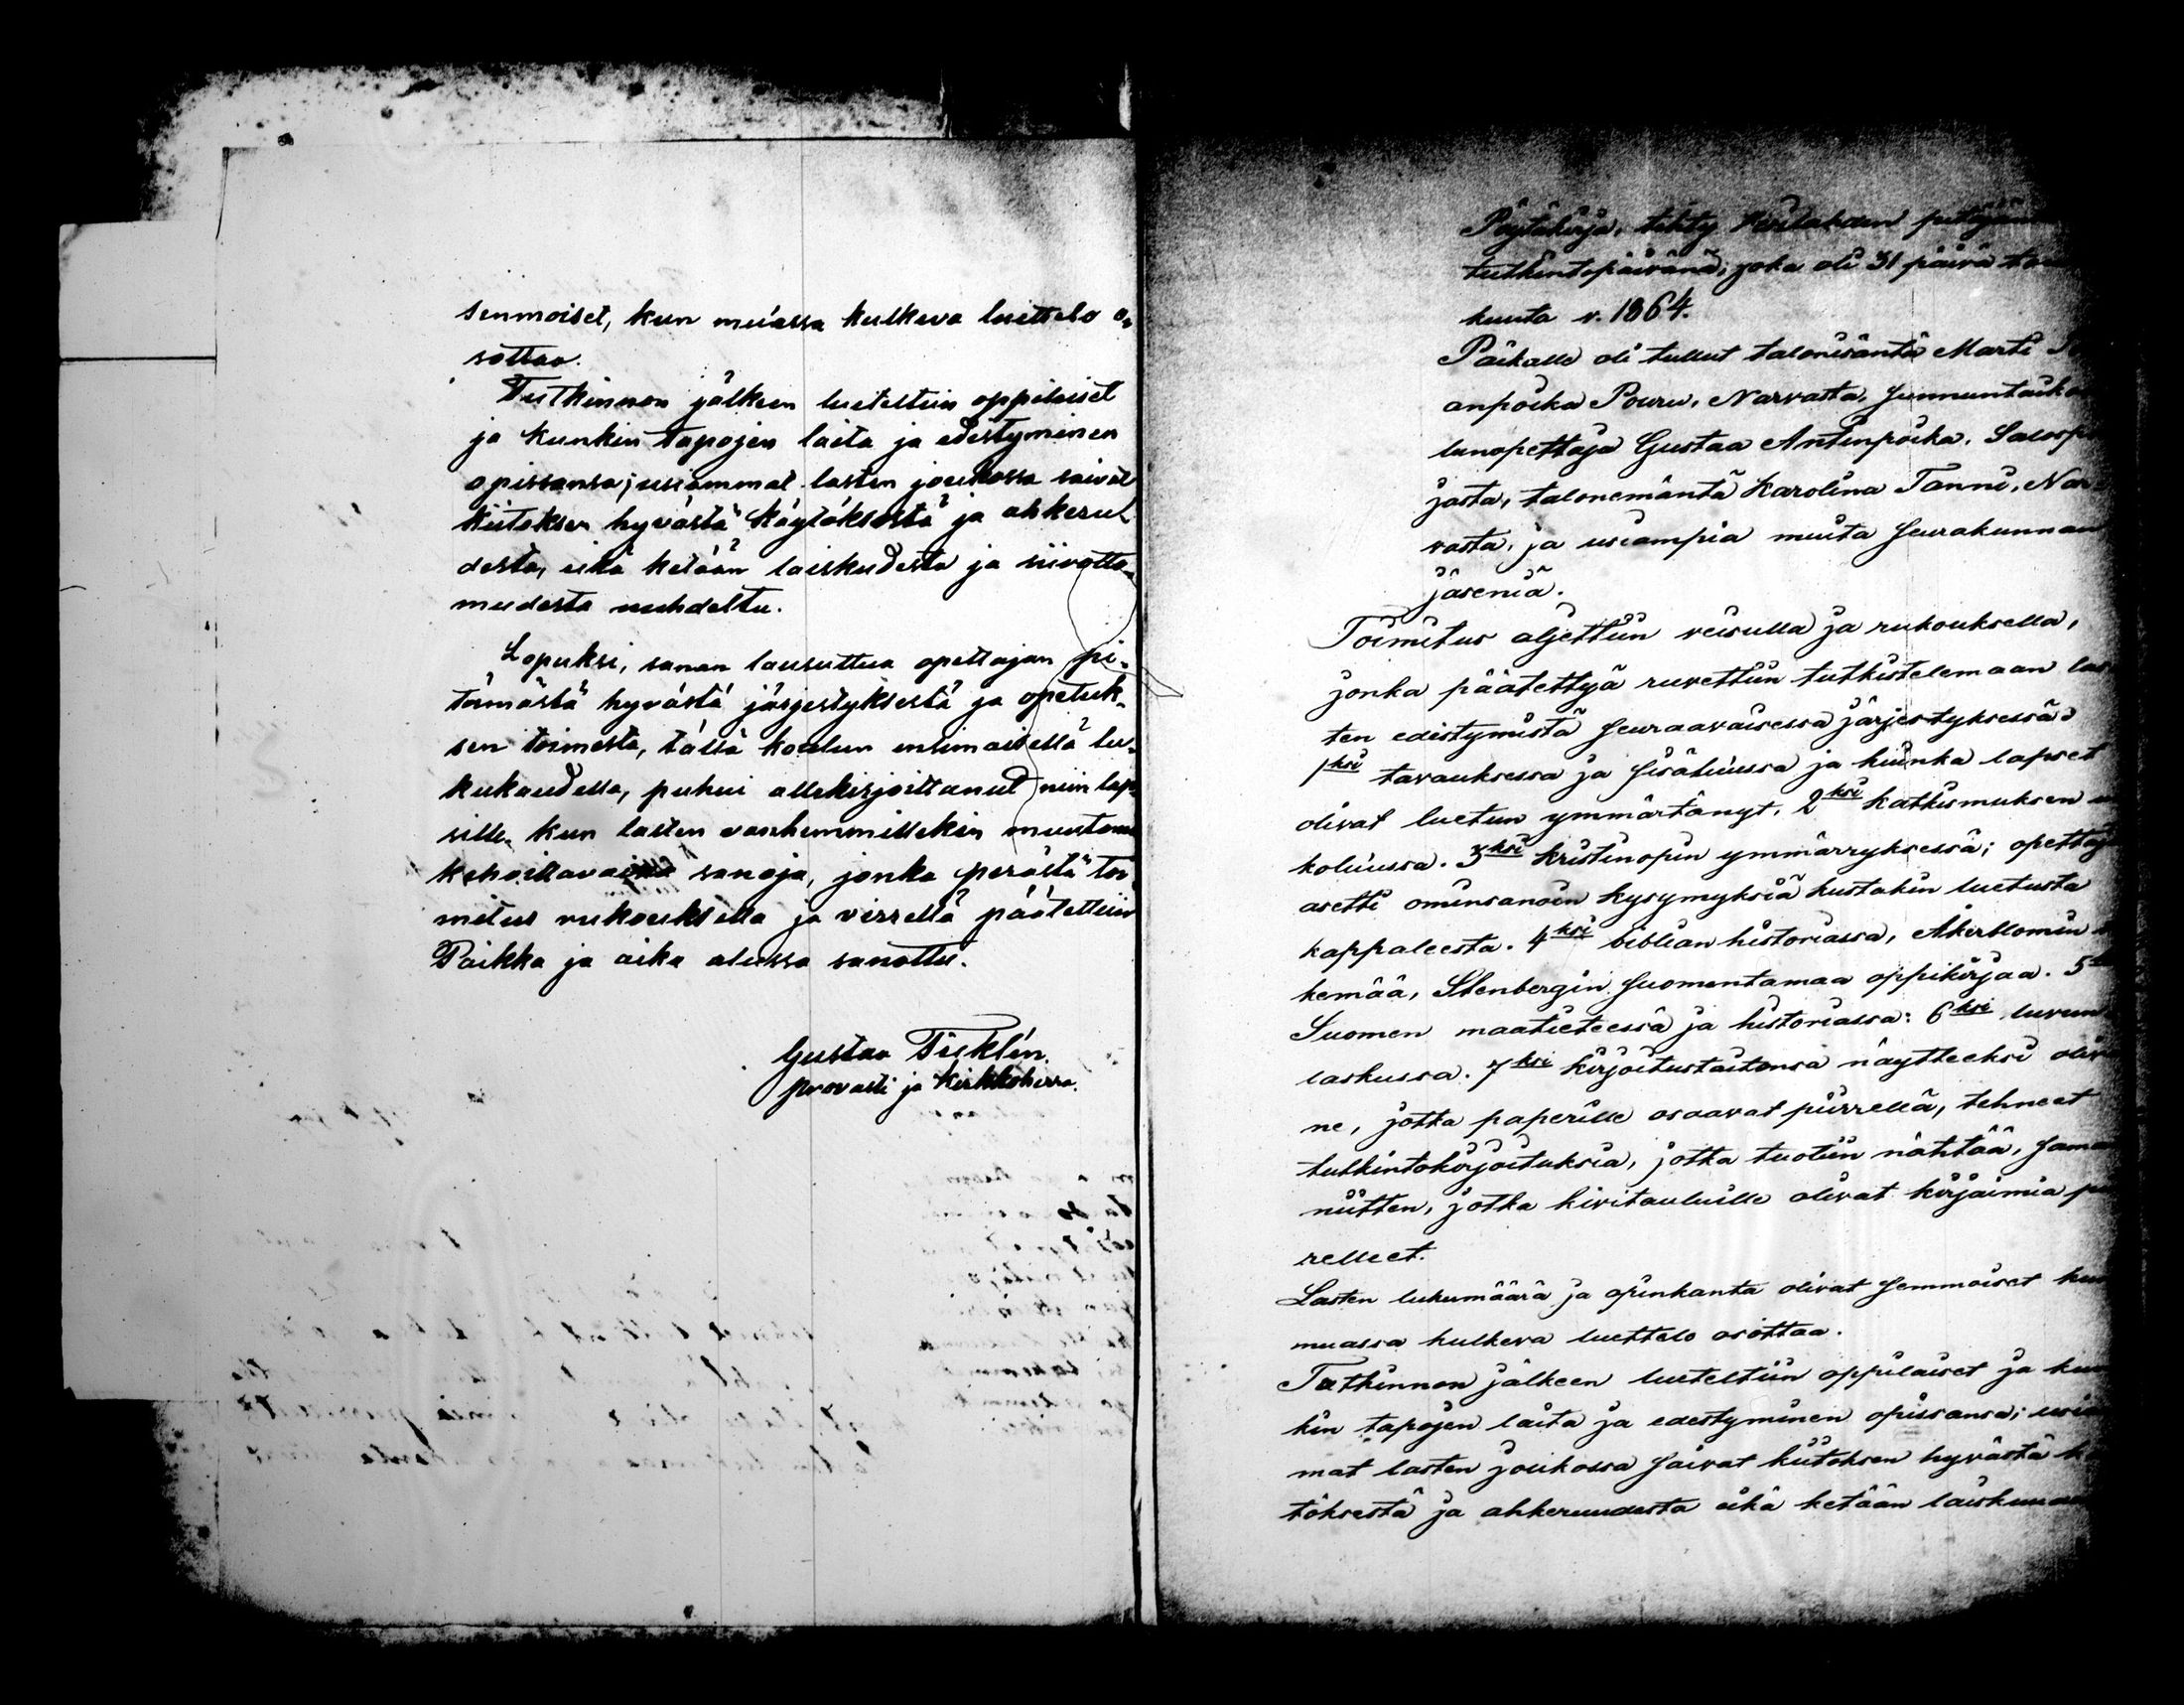 senmoiset, kun muassa kulkeva luettelo o-
sottaa.
Tutkinnon jälkeen lueteltiin oppilaiset
ja kunkin tapojen laita ja edestyminen
opissansa; usiammat lasten joukossa saivat
kiitoksen hyvästä käytöksestä ja ahkeruu-
desta, eikä ketään laiskudesta ja siivotto-
mudesta nuhdeltu.
Lopuksi, sanan lausuttua opettajan pi-
tämästä hyvästä järjestyksestä ja opetuk-
sen toimesta, tällä koulun ensimäisellä lu-
kukaudella, puhui allekirjoittanut niin lap-
sille, kun lasten vanhemmillekin muutama
kehoittavaisia sanoja, jonka perästä toi-
mitus rukouksella ja virrellä päätettiin
Paikka ja aika alussa sanottu.
Gustav Ticklén.
provasti ja Kirkkoherra.
Pöytäkirja, tehty
tutkintopäivänä, joka oli 31 päivä
kuuta v. 1864.
Paikalle oli tullut talonisäntä Marti
anpoika Pouru, Narvasta,
lunopettaja Gustaa Antinpoika,
jasta, talonemäntä Karolina Tanni, Nar-
vasta, ja useampia muita seurakunnan
jäseniä.
Toimitus aljettiin veisulla ja rukouksella,
jonka päätettyä ruvettiin tutkistelemaan las
ten edistymistä seuraavaisessa järjestyksessä:
1ksi tavauksessa ja sisäluussa ja kuinka lapset
olivat luetun ymmärtänyt, 2ksi katkismuksen
koluussa. 3ksi kristinopin ymmärryksessä; opettaja
asetti ominsanoin kysymyksiä kustakin luetusta
kappaleesta. 4ksi biblian historiassa, Åkerblomin
kemää, Stenbergin suomentamaa oppikirjaa. 5
Suomen maatieteessä ja historiassa: 6ksi luvun
laskussa. 7ksi kirjoitustaitonsa näytteeksi oliva
ne, jotka paperille osaavat piirrellä, tehneet
tutkintokirjoituksia, jotka tuotiin nähtää, sama
niitten, jotka kivitauluille olivat kirjaimia
relleet.
Lasten lukumäärä ja opinkanta olivat semmoiset kun
muassa kulkeva luettelo osottaa.
Tutkinnon jälkeen lueteltiin oppilaiset ja kun
kin tapojen laita ja edestyminen opissansa; usia
mat lasten joukossa saivat kiitoksen hyvästä
töksestä ja ahkeruudesta eikä ketään